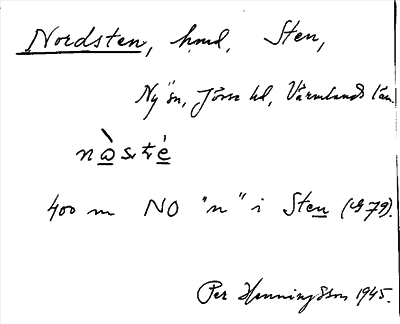 Nordsten, hmd, Sten,
Ny sn, Jösse hd, Värmlands län.
400 m NO "n" i Sten (G79).
Per Henningsson 1945.